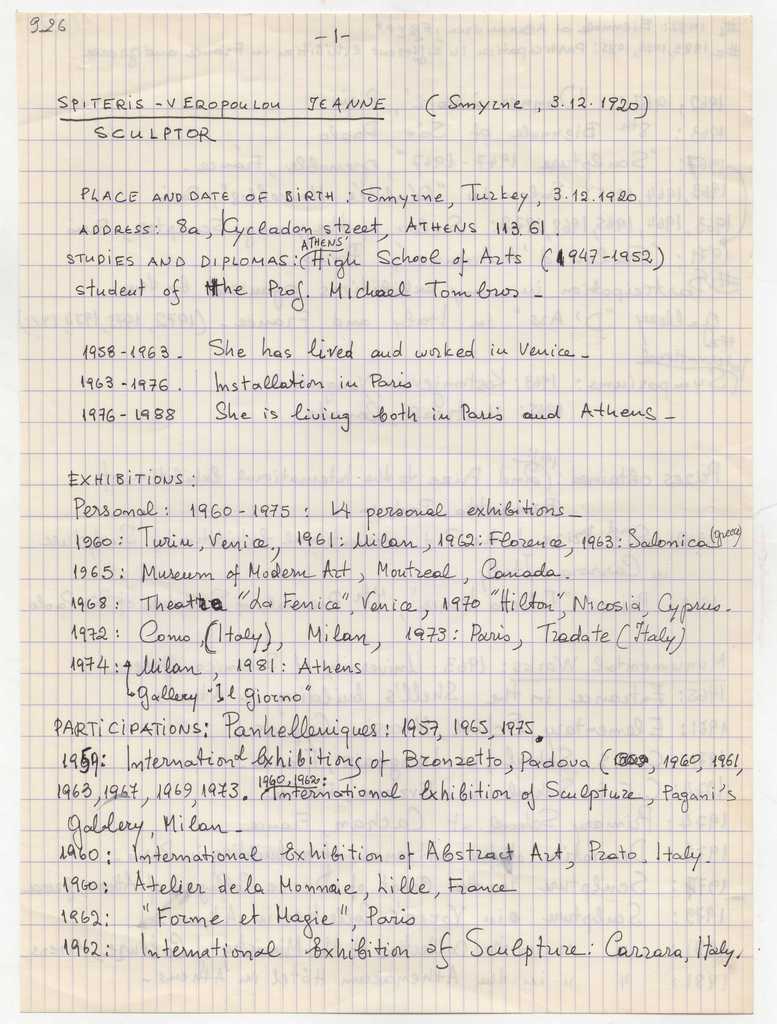 926
-1-
SPITERIS-VEROPOULOU JEANNE (Smyrne, 3.12.1920)
SCULPTOR
PLACE AND DATE OF BIRTH: Smyrne, Turkey, 3.12.1920
ADDRESS: 8a, Kycladon street, ATHENS 113.61.
STUDIES AND DIPLOMAS: (ATHENS' High School of Arts (1947-1952)
student of the Prof. Michael Tombros -
1958-1963. She has lived and worked in Venice -
1963-1976. Installation in Paris
1976-1988 She is living both in Paris and Athens -
EXHIBITIONS:
Personal: 1960-1975: 14 personal exhibitions -
1960: Turin, Venice, 1961: Milan, 1962: Florence, 1963: Salonica (greece)
1965: Museum of Modern Art, Montreal, Canada.
1968: Theatre "La Fenice", Venice, 1970 "Hilton", Nicosia, Cyprus.
1972: Como, (Italy), Milan, 1973: Paris, Tradate (Italy)
1974: Milan, 1981: Athens
Gallery "Il Giorno"
PARTICIPATIONS: Panhelleniques: 1957, 1965, 1975.
1959: International Exhibitions of Bronzetto, Padova (, 1960, 1961,
1963, 1967, 1969, 1973. 1960, 1962: International Exhibition of Sculpture, Pagani's
Gallery, Milan -
1960: International Exhibition of Abstract Art, Prato, Italy.
1960: Atelier de la Monnaie, Lille, France
1962: "Forme et Magie", Paris
1962: International Exhibition of Sculpture: Carrara, Italy.